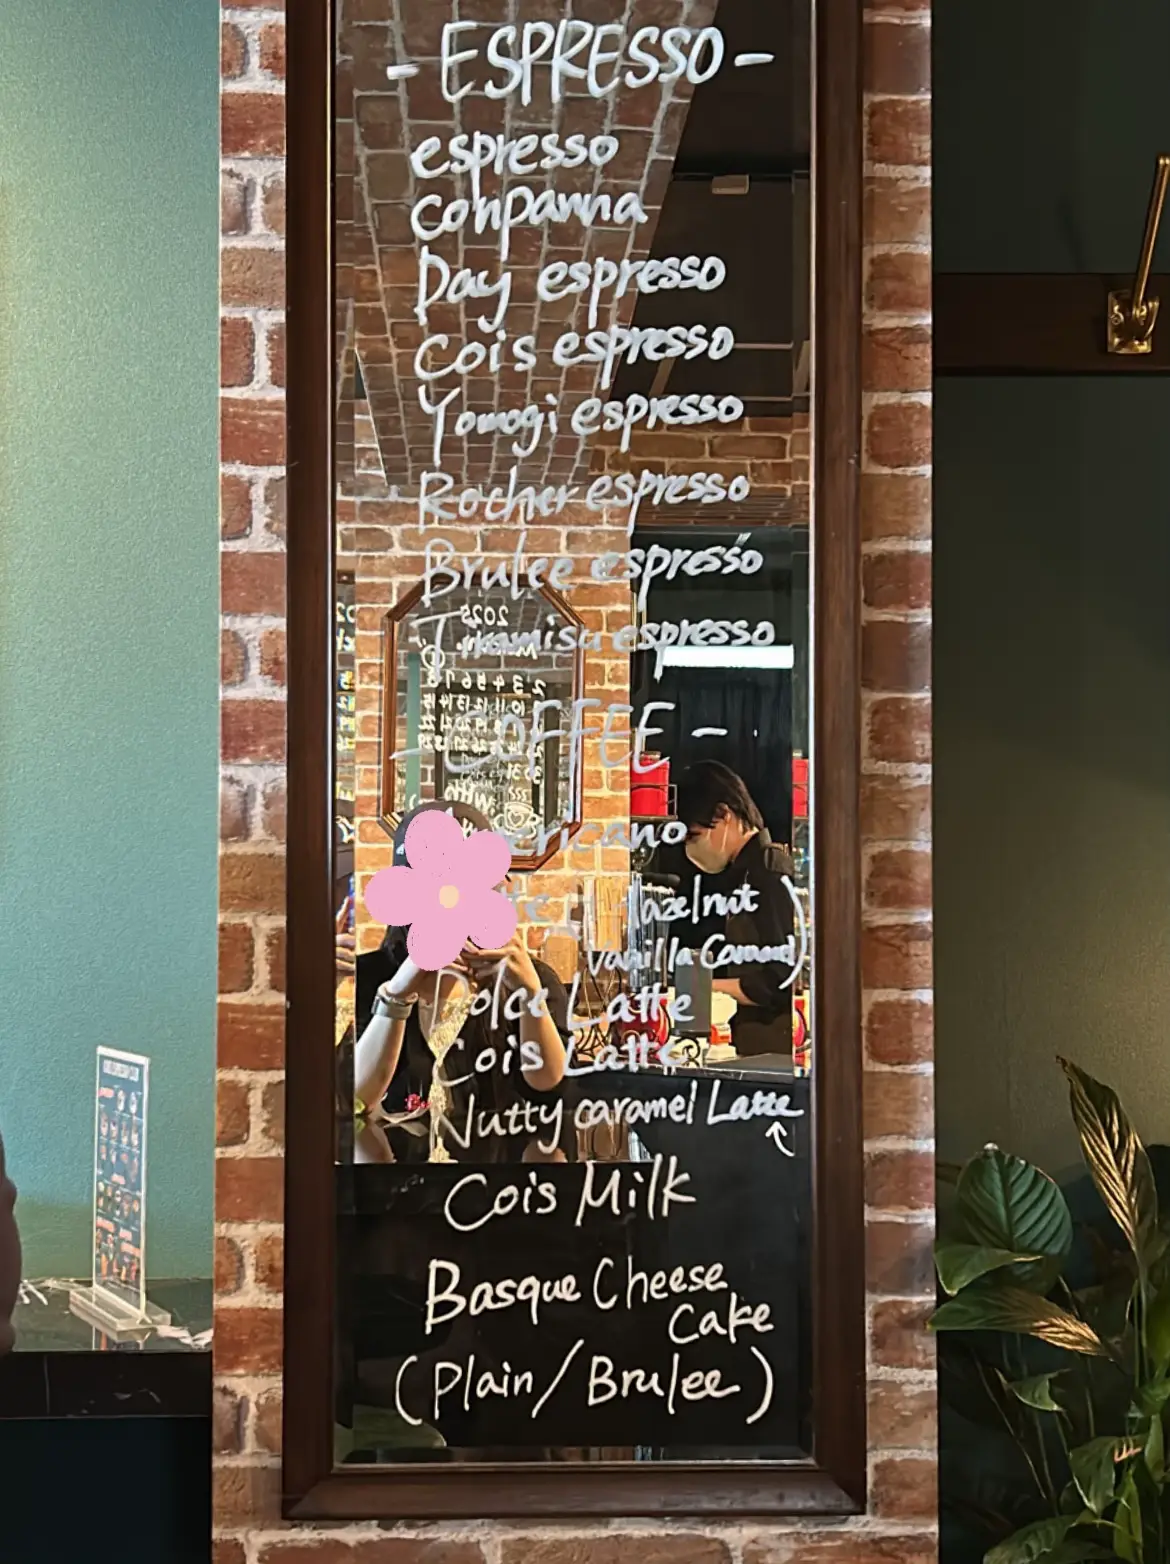 - ESPRESSO -
espresso
conpanna
Day espresso
Cois espresso
Yomogi espresso
Rocher espresso
Brulee espresso
Tiramisu espresso
- COFFEE -
Americano
Hazelnut
Vanilla Caramel)
Dolce Latte
Cois Latte
Nutty caramel Latte
Cois Milk
Basque Cheese
Cake
(Plain/Brulee)
2025